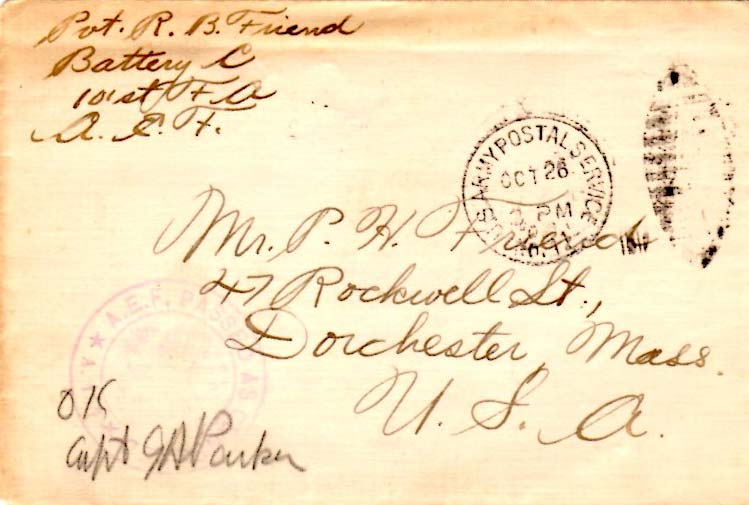 Pvt. R. B. Friend
Battery C
101st F A
A. E. F.
U.S. ARMY POSTAL SERVICE
OCT 26
PM
Mr. P. H. Friend
47 Rockwell St.,
Dorchester, Mass.
U. S. A.
A.E.F. PASSED AS
OK
Capt JAParker